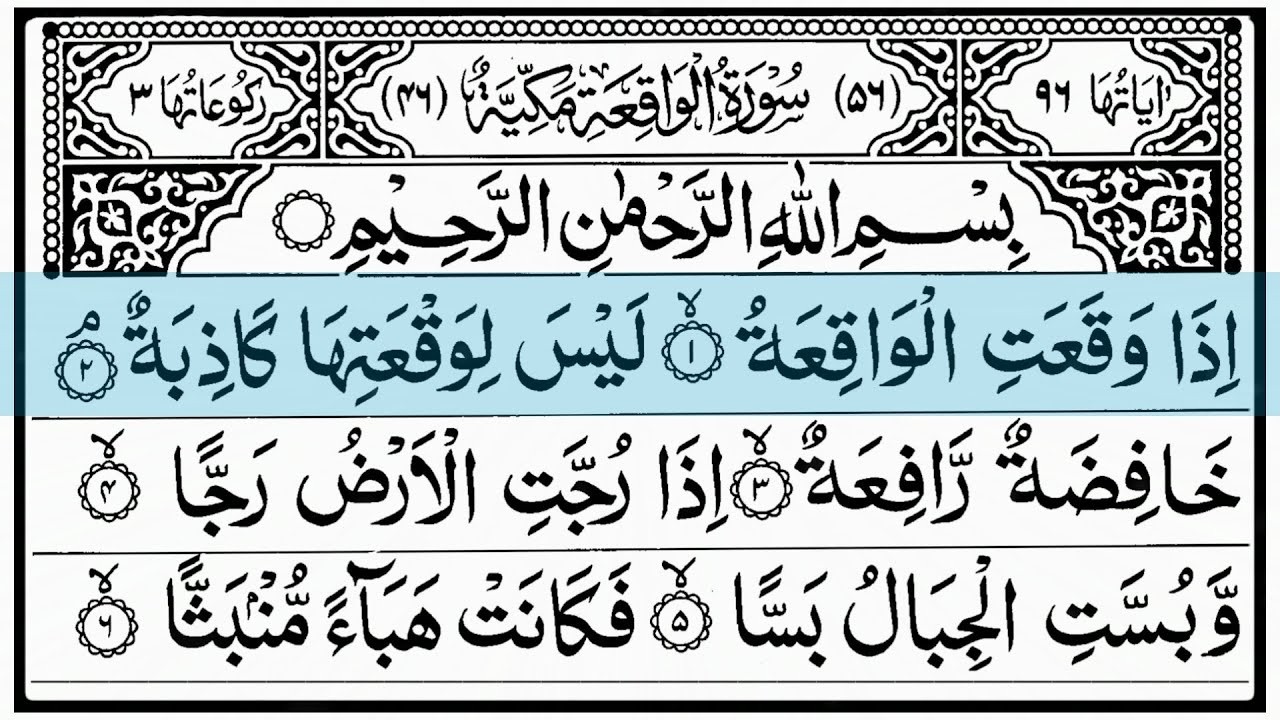 اٰيَاتُهَا ٩٦ (٥٦) سُوْرَةُ الْوَاقِعَةِ مَكِّيَّةٌ (٤٦) رُكُوْعَاتُهَا ٣
بِسْمِ اللهِ الرَّحْمٰنِ الرَّحِيْمِ ۝
اِذَا وَقَعَتِ الْوَاقِعَةُ ۙ﴿۱﴾ لَيْسَ لِوَقْعَتِهَا كَاذِبَةٌ ۘ﴿۲﴾
خَافِضَةٌ رَّافِعَةٌ ۙ﴿۳﴾ اِذَا رُجَّتِ الْاَرْضُ رَجًّا ۙ﴿۴﴾
وَّبُسَّتِ الْجِبَالُ بَسًّا ۙ﴿۵﴾ فَكَانَتْ هَبَآءً مُّنْۢبَثًّا ۙ﴿۶﴾